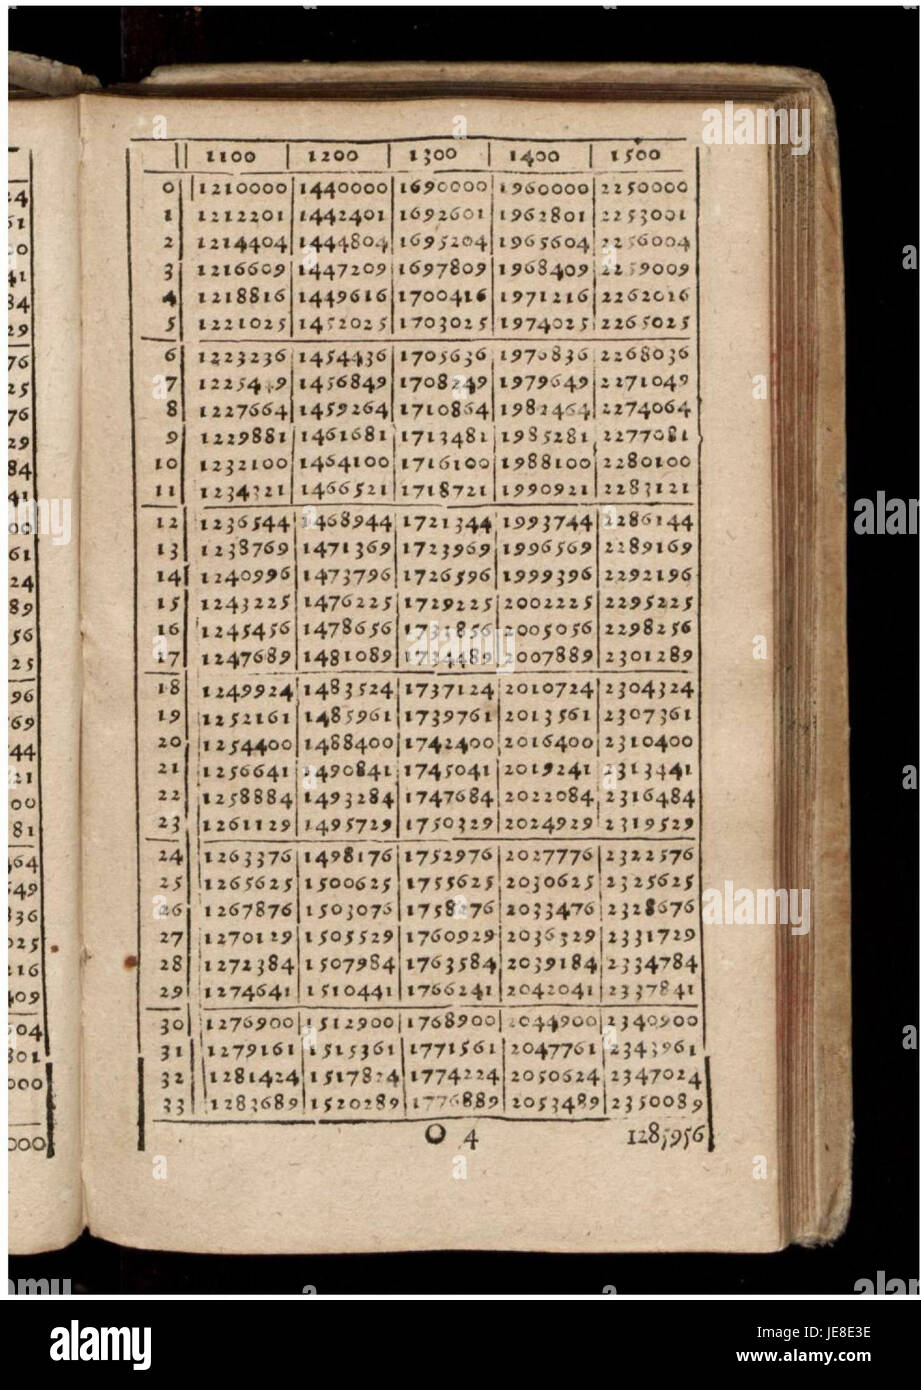 1100 1200 1300 1400 1500
0 1210000 1440000 1690000 1960000 2250000
1 1212201 1442401 1692601 1962801 2253001
2 1214404 1444804 1695204 1965604 2256004
3 1216609 1447209 1697809 1968409 2259009
4 1218816 1449616 1700416 1971216 2262016
5 1221025 1452025 1703025 1974025 2265025
6 1223236 1454436 1705636 1976836 2268036
7 1225449 1456849 1708249 1979649 2271049
8 1227664 1459264 1710864 1982464 2274064
9 1229881 1461681 1713481 1985281 2277081
10 1232100 1464100 1716100 1988100 2280100
11 1234321 1466521 1718721 1990921 2283121
12 1236544 1468944 1721344 1993744 2286144
13 1238769 1471369 1723969 1996569 2289169
14 1240996 1473796 1726596 1999396 2292196
15 1243225 1476225 1729225 2002225 2295225
16 1245456 1478656 1731856 2005056 2298256
17 1247689 1481089 1734489 2007889 2301289
18 1249924 1483524 1737124 2010724 2304324
19 1252161 1485961 1739761 2013561 2307361
20 1254400 1488400 1742400 2016400 2310400
21 1256641 1490841 1745041 2019241 2313441
22 1258884 1493284 1747684 2022084 2316484
23 1261129 1495729 1750329 2024929 2319529
24 1263376 1498176 1752976 2027776 2322576
25 1265625 1500625 1755625 2030625 2325625
26 1267876 1503076 1758276 2033476 2328676
27 1270129 1505529 1760929 2036329 2331729
28 1272384 1507984 1763584 2039184 2334784
29 1274641 1510441 1766241 2042041 2337841
30 1276900 1512900 1768900 2044900 2340900
31 1279161 1515361 1771561 2047761 2343961
32 1281424 1517824 1774224 2050624 2347024
33 1283689 1520289 1776889 2053489 2350089
O 4 1285956
alamy
Image ID: JE8E3E
www.alamy.com